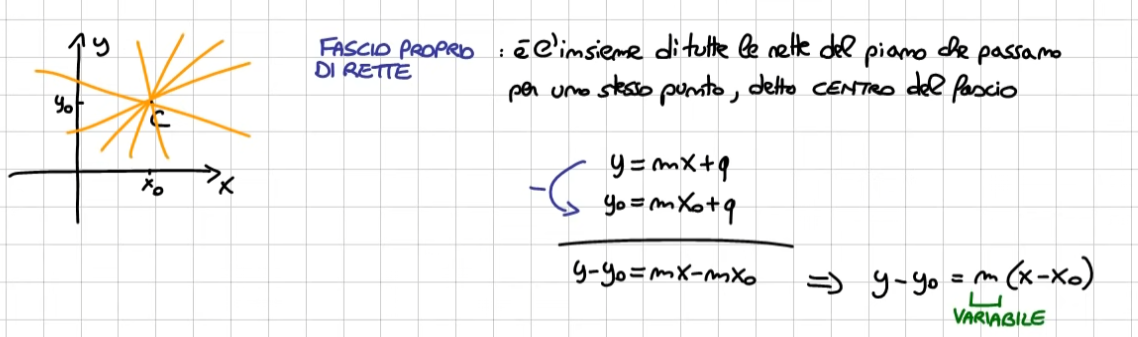 y
y₀
C
x₀
x
FASCIO PROPRIO
DI RETTE
: è l'insieme di tutte le rette del piano che passano
per uno stesso punto, detto CENTRO del fascio
y = mx + q
−
y₀ = mx₀ + q
y - y₀ = mx - mx₀ ⇒ y - y₀ = m (x - x₀)
VARIABILE